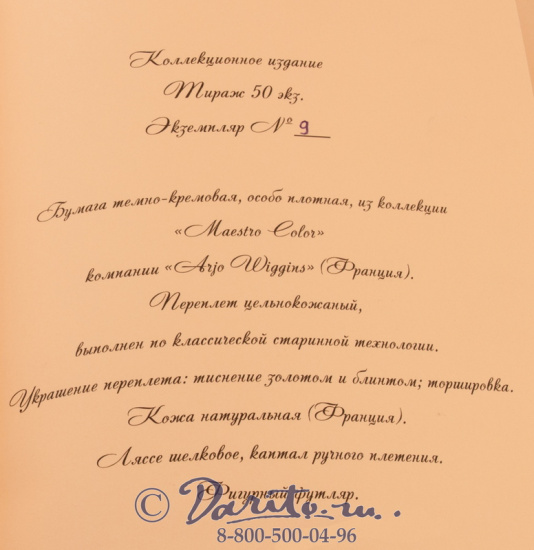 Коллекционное издание
Тираж 50 экз.
Экземпляр № 9
Бумага темно-кремовая, особо плотная, из коллекции
«Maestro Color»
компании «Arjo Wiggins» (Франция).
Переплет цельнокожаный,
выполнен по классической старинной технологии.
Украшение переплета: тиснение золотом и блинтом; торшировка.
Кожа натуральная (Франция).
Ляссе шелковое, каптал ручного плетения.
Фигурный футляр.
© Darito.ru..
8-800-500-04-96